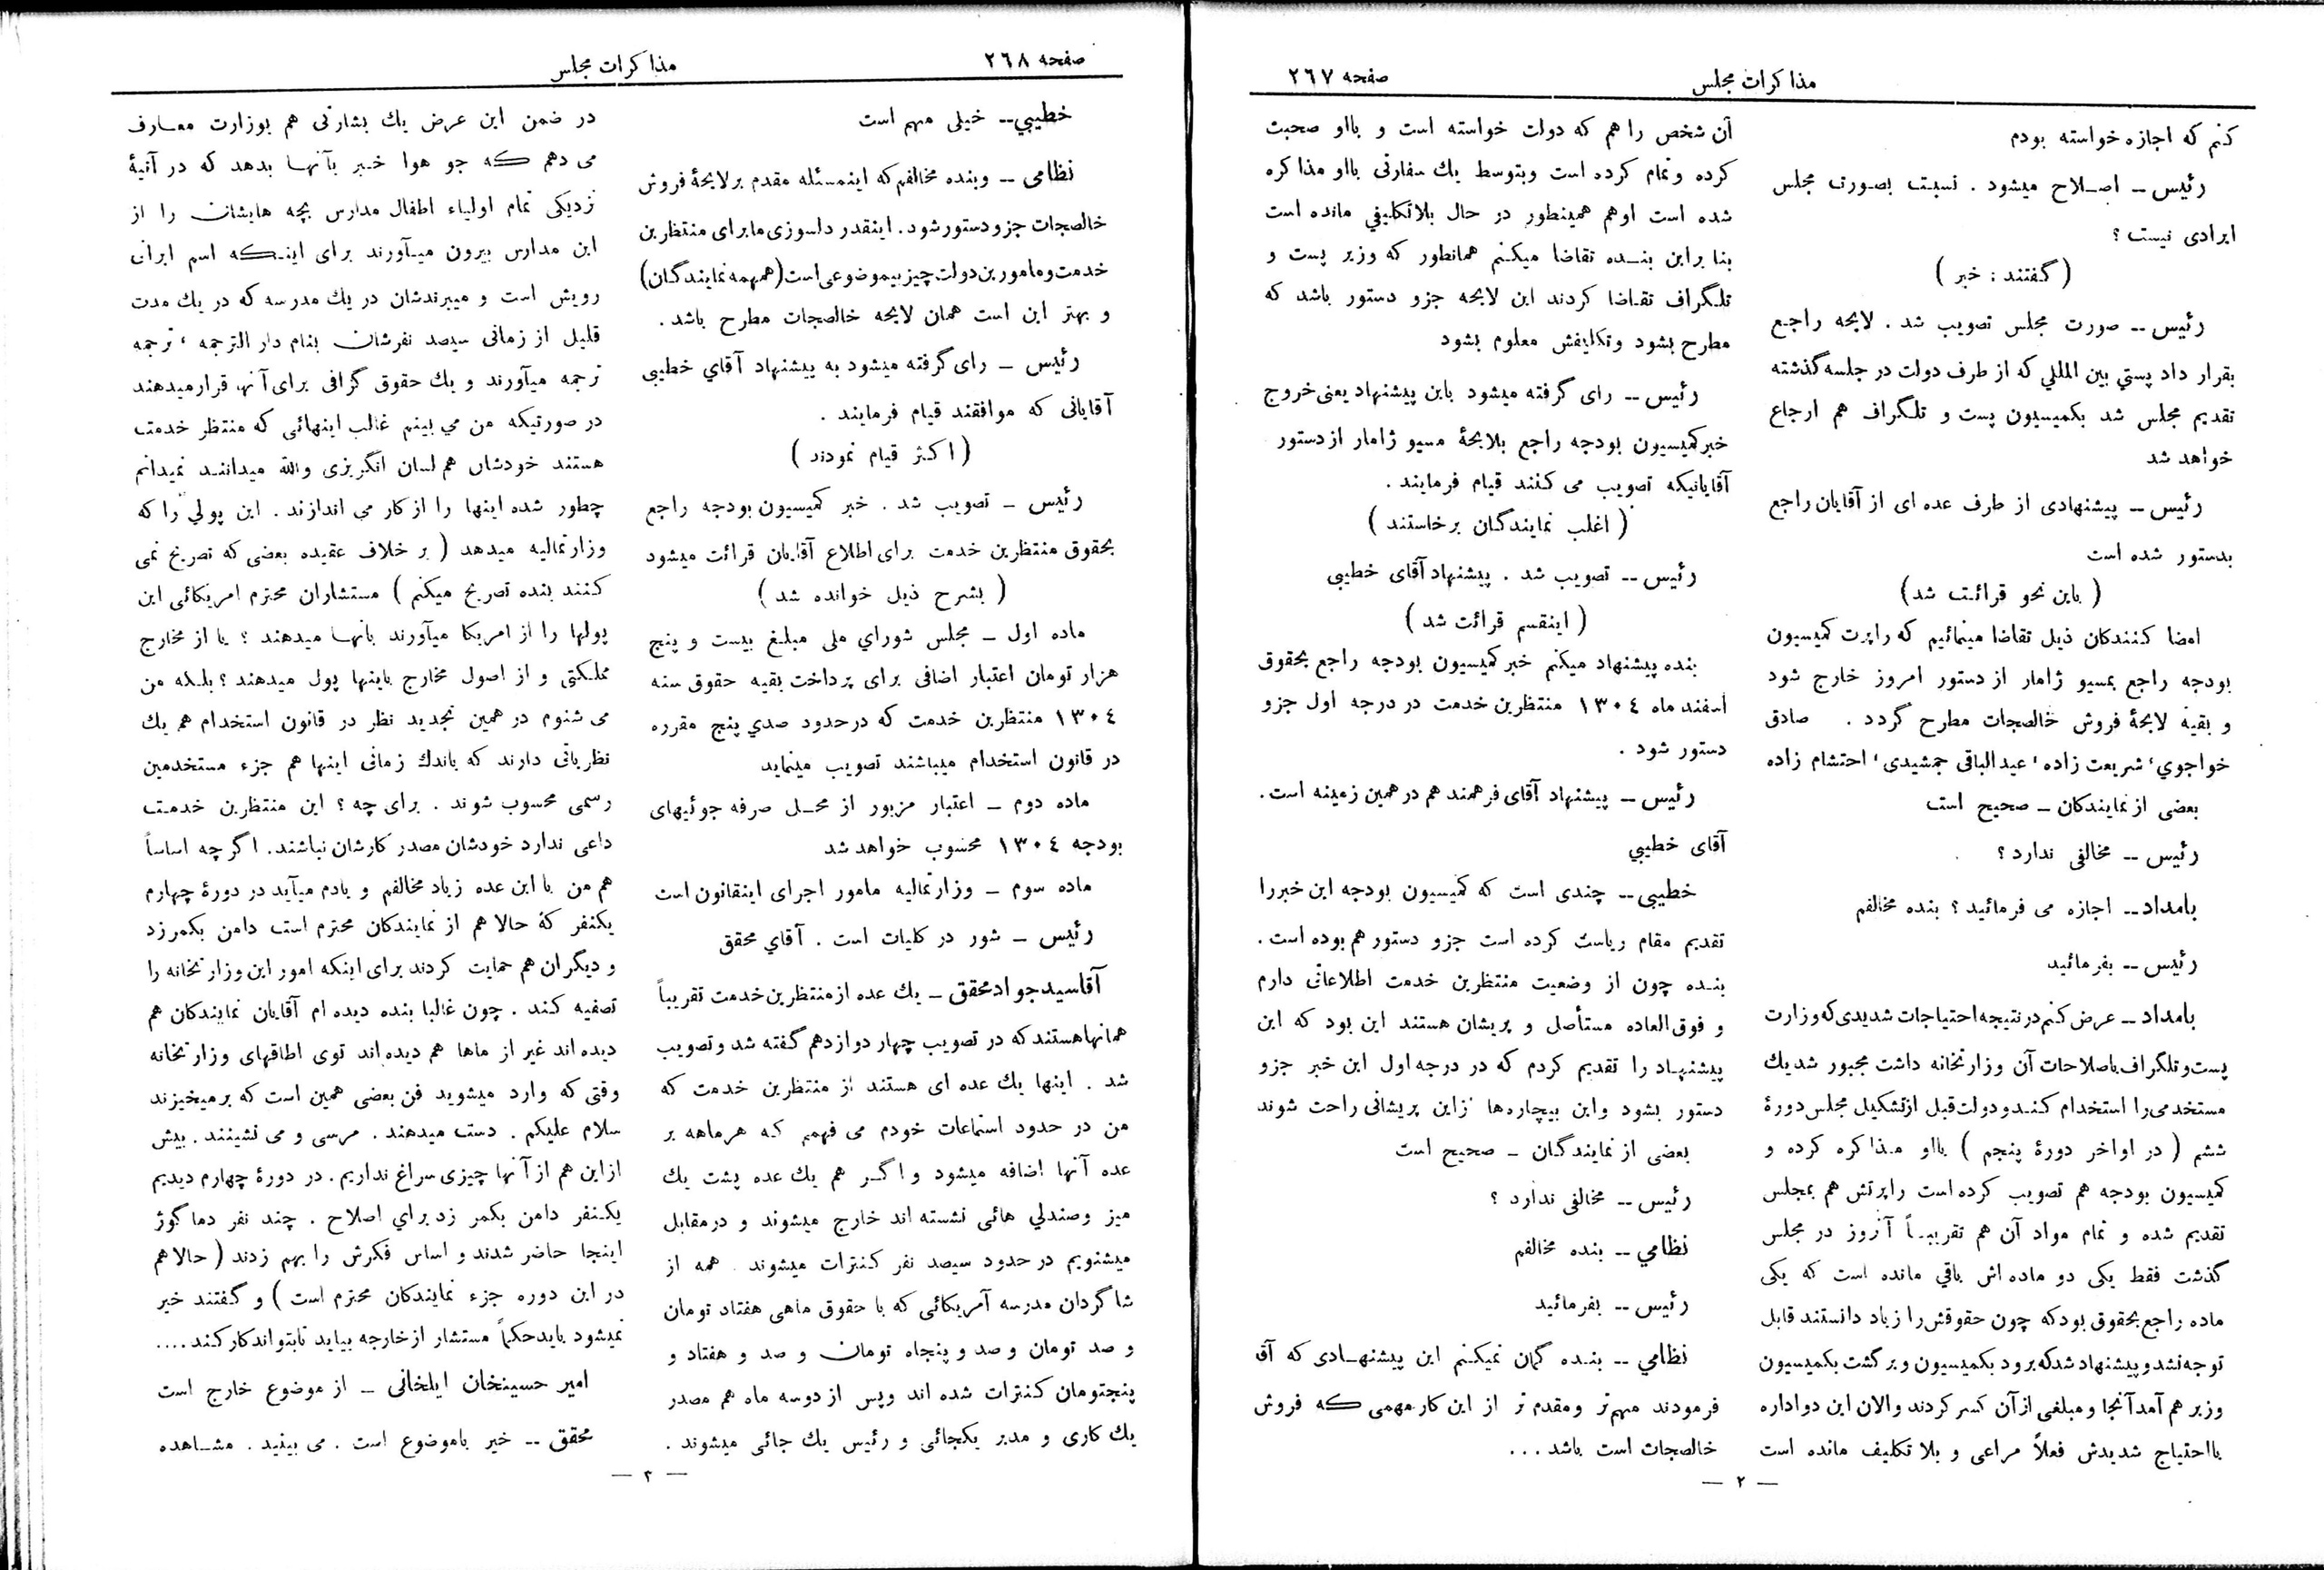 مذاکرات مجلس
صفحه ٢٦٧
کنم که اجازه خواسته بودم
رئیس – اصلاح میشود . نسبت بصورت مجلس
ایرادی نیست ؟
( گفتند : خیر )
رئیس -- صورت مجلس تصویب شد . لایحه راجع
بقرار داد پستي بین المللي که از طرف دولت در جلسه گذشته
تقدیم مجلس شد بکمیسیون پست و تلگراف هم ارجاع
خواهد شد
رئیس -- پیشنهادی از طرف عده ای از آقایان راجع
بدستور شده است
( باین نحو قرائت شد )
امضا کنندکان ذیل تقاضا مینمائیم که راپرت کمیسیون
بودجه راجع بمسیو ژامار از دستور امروز خارج شود
و بقیه لایحهٔ فروش خالصجات مطرح گردد . صادق
خواجوي، شریعت زاده، عبدالباقی جمشیدی، احتشام زاده
بعضی از نمایندکان – صحیح است
رئیس -- مخالفی ندارد ؟
بامداد -- اجازه می فرمائید ؟ بنده مخالفم
رئیس -- بفرمائید
بامداد – عرض کنم در نتیجه احتیاجات شدیدی که وزارت
پست و تلگراف باصلاحات آن وزارتخانه داشت مجبور شد یك
مستخدمی را استخدام کند و دولت قبل از تشکیل مجلس دورهٔ
ششم ( در اواخر دورهٔ پنجم ) بااو مذاکره کرده و
کمیسیون بودجه هم تصویب کرده است راپرتش هم بمجلس
تقدیم شده و تمام مواد آن هم تقریباً آنروز در مجلس
گذشت فقط یکی دو ماده اش باقي مانده است که یکی
ماده راجع بحقوق بود که چون حقوقش را زیاد دانستند قابل
توجه نشد و پیشنهاد شد که برود بکمیسیون و برگشت بکمیسیون
وزیر هم آمد آنجا و مبلغی از آن کسر کردند والان این دو اداره
بااحتیاج شدیدش فعلاً مراعی و بلا تکلیف مانده است
آن شخص را هم که دولت خواسته است و بااو صحبت
کرده و تمام کرده است و بتوسط یك سفارتی بااو مذاکره
شده است او هم همینطور در حال بلاتکلیفي مانده است
بنا براین بنده تقاضا میکنم همانطور که وزیر پست و
تلگراف تقاضا کردند این لایحه جزو دستور باشد که
مطرح بشود و تکلیفش معلوم بشود
رئیس -- رای گرفته میشود باین پیشنهاد یعنی خروج
خبر کمیسیون بودجه راجع بلایحهٔ مسیو ژامار از دستور
آقایانیکه تصویب می کنند قیام فرمایند .
( اغلب نمایندگان برخاستند )
رئیس -- تصویب شد . پیشنهاد آقای خطیبی
( اینقسم قرائت شد )
بنده پیشنهاد میکنم خبر کمیسیون بودجه راجع بحقوق
اسفند ماه ١٣٠٤ منتظرین خدمت در درجه اول جزو
دستور شود .
رئیس -- پیشنهاد آقای فرهمند هم در همین زمینه است .
آقای خطیبي
خطیبی -- چندی است که کمیسیون بودجه این خبر را
تقدیم مقام ریاست کرده است جزو دستور هم بوده است .
بنده چون از وضعیت منتظرین خدمت اطلاعاتی دارم
و فوق العاده مستأصل و پریشان هستند این بود که این
پیشنهاد را تقدیم کردم که در درجه اول این خبر جزو
دستور بشود واین بیچاره‌ها ازاین پریشانی راحت شوند
بعضی از نمایندگان – صحیح است
رئیس -- مخالفی ندارد ؟
نظامي -- بنده مخالفم
رئیس -- بفرمائید
نظامي -- بنده گمان نمیکنم این پیشنهادی که آقا
فرمودند مهم تر و مقدم تر از این کار مهمی که فروش
خالصجات است باشد . . .
— ٢ —
صفحه ٢٦٨
مذاکرات مجلس
خطیبي -- خیلی مهم است
نظامی -- و بنده مخالفم که اینمسئله مقدم بر لایحهٔ فروش
خالصجات جزو دستور شود . اینقدر دلسوزی ما برای منتظرین
خدمت و مامورین دولت چیز بیموضوعی است (همهمه نمایندگان)
و بهتر این است همان لایحه خالصجات مطرح باشد .
رئیس – رای گرفته میشود به پیشنهاد آقاي خطیبی
آقایانی که موافقند قیام فرمایند .
( اکثر قیام نمودند )
رئیس – تصویب شد . خبر کمیسیون بودجه راجع
بحقوق منتظرین خدمت برای اطلاع آقایان قرائت میشود
( بشرح ذیل خوانده شد )
ماده اول – مجلس شوراي ملی مبلغ بیست و پنج
هزار تومان اعتبار اضافی برای پرداخت بقیه حقوق سنه
١٣٠٤ منتظرین خدمت که در حدود صدي پنج مقرره
در قانون استخدام میباشند تصویب مینماید
ماده دوم – اعتبار مزبور از محل صرفه جوئیهای
بودجه ١٣٠٤ محسوب خواهد شد
ماده سوم – وزارتمالیه مامور اجرای اینقانون است
رئیس – شور در کلیات است . آقاي محقق
آقاسید جواد محقق – یك عده از منتظرین خدمت تقریباً
همانها هستند که در تصویب چهار دوازدهم گفته شد و تصویب
شد . اینها یك عده ای هستند از منتظرین خدمت که
من در حدود استماعات خودم می فهمم که هرماهه بر
عده آنها اضافه میشود و اگر هم یك عده پشت یك
میز و صندلي هائی نشسته اند خارج میشوند و در مقابل
میشنویم در حدود سیصد نفر کنترات میشوند . همه از
شاگردان مدرسه آمریکائی که با حقوق ماهی هفتاد تومان
و صد تومان و صد و پنجاه تومان و صد و هفتاد و
پنجتومان کنترات شده اند و پس از دوسه ماه هم مصدر
یك کاری و مدیر یکجائی و رئیس یك جائی میشوند .
در ضمن این عرض یك بشارتی هم بوزارت معارف
می دهم که جو هوا خبر بآنها بدهد که در آتیهٔ
نزدیکی تمام اولیاء اطفال مدارس بچه هایشان را از
این مدارس بیرون میآورند برای اینکه اسم ایران
رویش است و میبرندشان در یك مدرسه که در یك مدت
قلیل از زمانی سیصد نفرشان بنام دار الترجمه ، ترجمه
ترجمه میآورند و یك حقوق گزافی برای آنها قرار میدهند
در صورتیکه من می بینم غالب اینهائی که منتظر خدمت
هستند خودشان هم لسان انگریزی والله میدانند نمیدانم
چطور شده اینها را از کار می اندازند . این پولي را که
وزارتمالیه میدهد ( بر خلاف عقیده بعضی که تصریح نمی
کنند بنده تصریح میکنم ) مستشاران محترم امریکائی این
پولها را از امریکا میآورند بانها میدهند ؟ یا از مخارج
مملکتی و از اصول مخارج باینها پول میدهند ؟ بلکه من
می شنوم در همین تجدید نظر در قانون استخدام هم یك
نظریاتی دارند که باندك زمانی اینها هم جزء مستخدمین
رسمی محسوب شوند . برای چه ؟ این منتظرین خدمت
داعی ندارد خودشان مصدر کارشان نباشند. اگر چه اساساً
هم من با این عده زیاد مخالفم و یادم میآید در دورهٔ چهارم
یکنفر که حالا هم از نمایندکان محترم است دامن بکمر زد
و دیگران هم حمایت کردند برای اینکه امور این وزارتخانه را
تصفیه کند . چون غالبا بنده دیده ام آقایان نمایندکان هم
دیده اند غیر از ماها هم دیده اند توی اطاقهای وزارتخانه
وقتی که وارد میشوید فن بعضی همین است که برمیخیزند
سلام علیکم . دست میدهند . مرسی و می نشینند . بیش
از این هم از آنها چیزی سراغ نداریم . در دورهٔ چهارم دیدیم
یکنفر دامن بکمر زد براي اصلاح . چند نفر دماگوژ
اینجا حاضر شدند و اساس فکرش را بهم زدند ( حالا هم
در این دوره جزء نمایندکان محترم است ) و گفتند خیر
نمیشود باید حکماً مستشار از خارجه بیاید تا بتواند کار کند ....
امیر حسینخان ایلخانی – از موضوع خارج است
محقق -- خیر باموضوع است . می بینید . مشاهده
— ٣ —